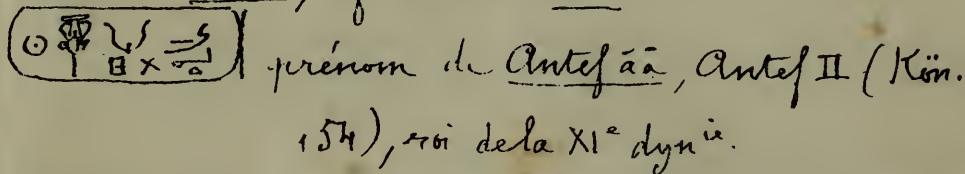 prénom de Antef āā, Antef II (Kön.
154), roi de la XIᵉ dynⁱᵉ.